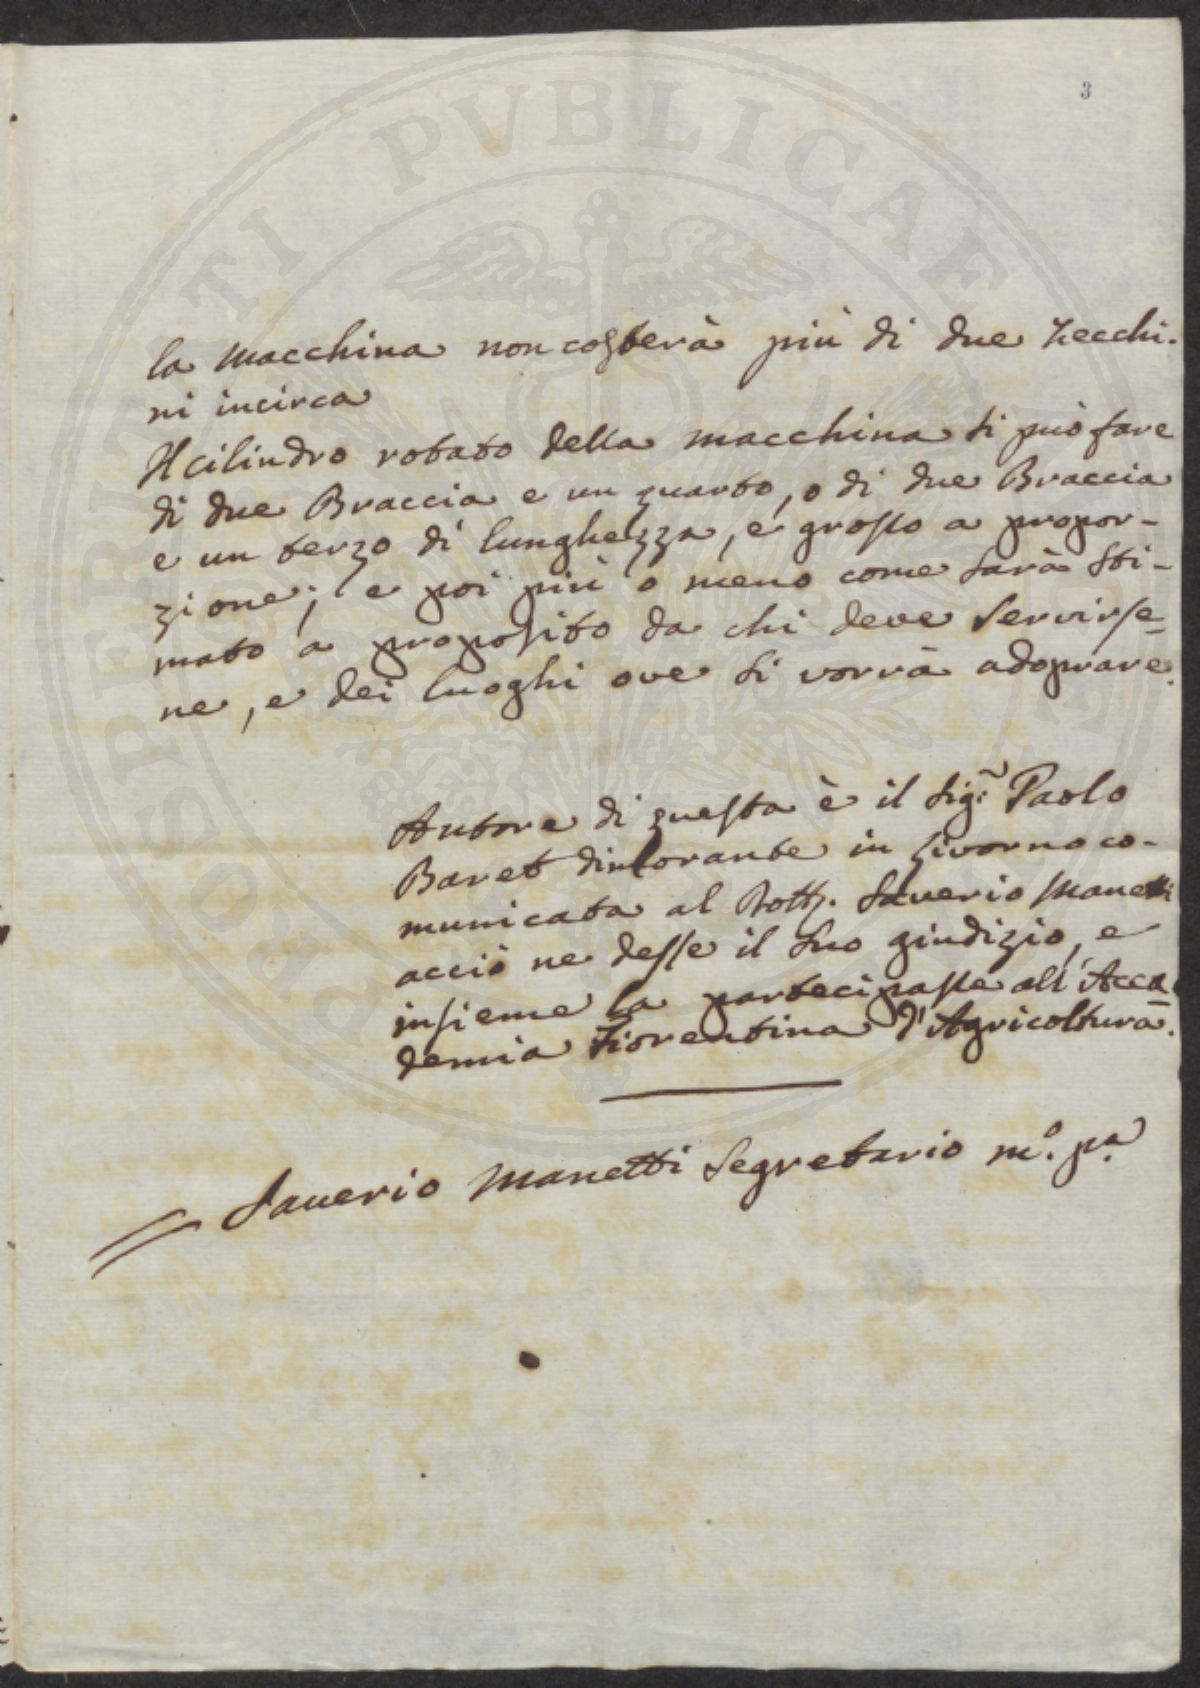 3
la macchina non costerà più di due Zecchi-
ni incirca
Il cilindro rotato della macchina si può fare
di due Braccia e un quarto, o di due Braccia
e un terzo di lunghezza, e grosso a propor-
zione; e poi più o meno come sarà sti-
mato a proposito da chi deve servirse-
ne, e dei luoghi ove si vorrà adoprare.
Autore di questa è il Sig.r Paolo
Baret dimorante in Livorno co-
municata al Dott. Saverio Manetti
acciò ne desse il suo giudizio, e
insieme la partecipasse all'Acca-
demia Fiorentina d'Agricoltura.
Saverio Manetti Segretario m.o p.a
PROSPERITATI PUBLICAE